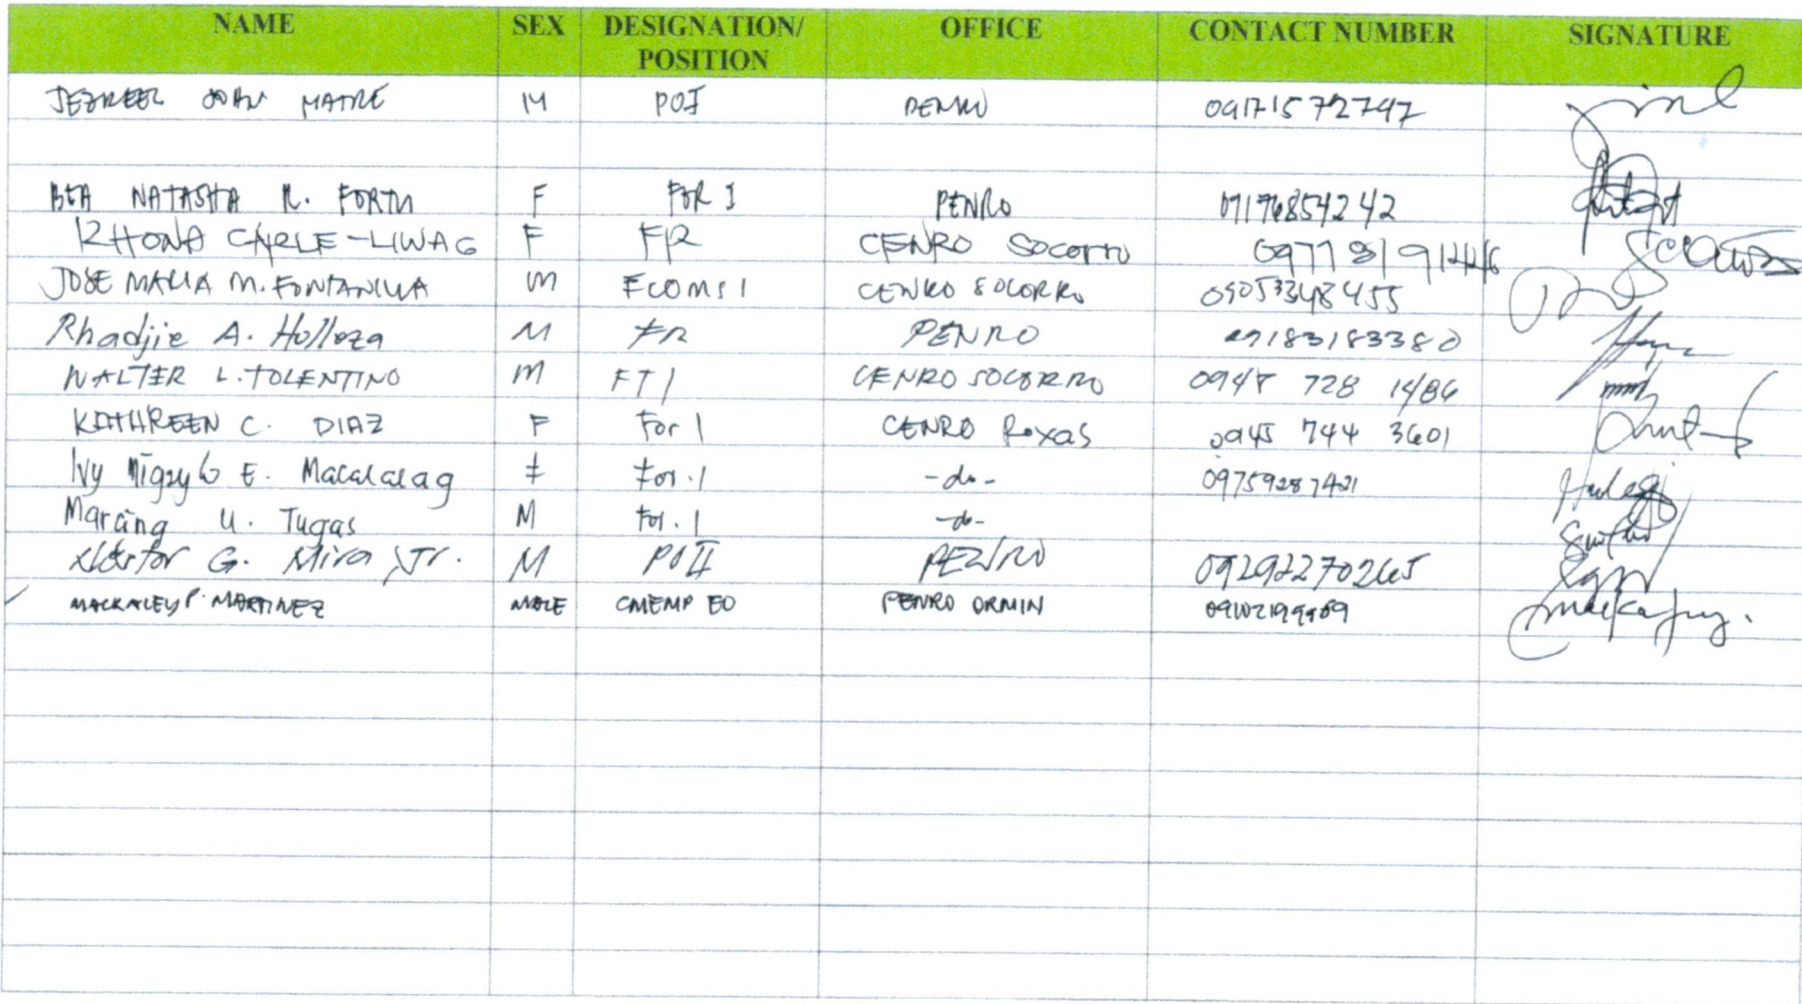 NAME SEX DESIGNATION/ OFFICE CONTACT NUMBER SIGNATURE
POSITION
JEZREEL JOHN MATRE M POI PENRO 09171572747
BEA NATASHA R. FORTU F FOR I PENRO 09176854242
RHONA CARLE-LIWAG F FR CENRO SOCORRO
JOSE MARIA M. FONTANILLA M ECOMS I CENRO SOCORRO 09053348455
Rhadjie A. Holloza M FR PENRO 09183183380
WALTER L. TOLENTINO M FT 1 CENRO SOCORRO 0947 728 1486
KATHREEN C. DIAZ F For 1 CENRO Roxas 0945 744 3601
Ivy E. Macalalag F For.1 -do- 09759287421
Marcing U. Tugas M For.1 -do-
Nestor G. Mira Jr. M POII PENRO 09292270265
MACKALEY P. MARTINEZ MALE CMEMP EO PENRO ORMIN